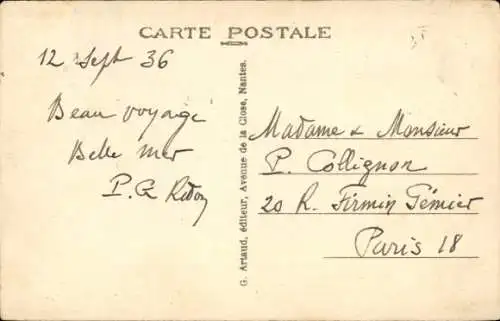 CARTE POSTALE
12 Sept 36
Beau voyage
Belle mer
P. G.
G. Artaud, éditeur, Avenue de la Close, Nantes.
Madame & Monsieur
P. Collignon
20 R. Firmin Gémier
Paris 18